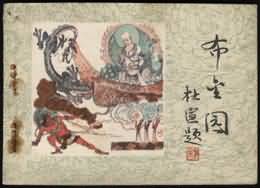 布金园
杜宣题